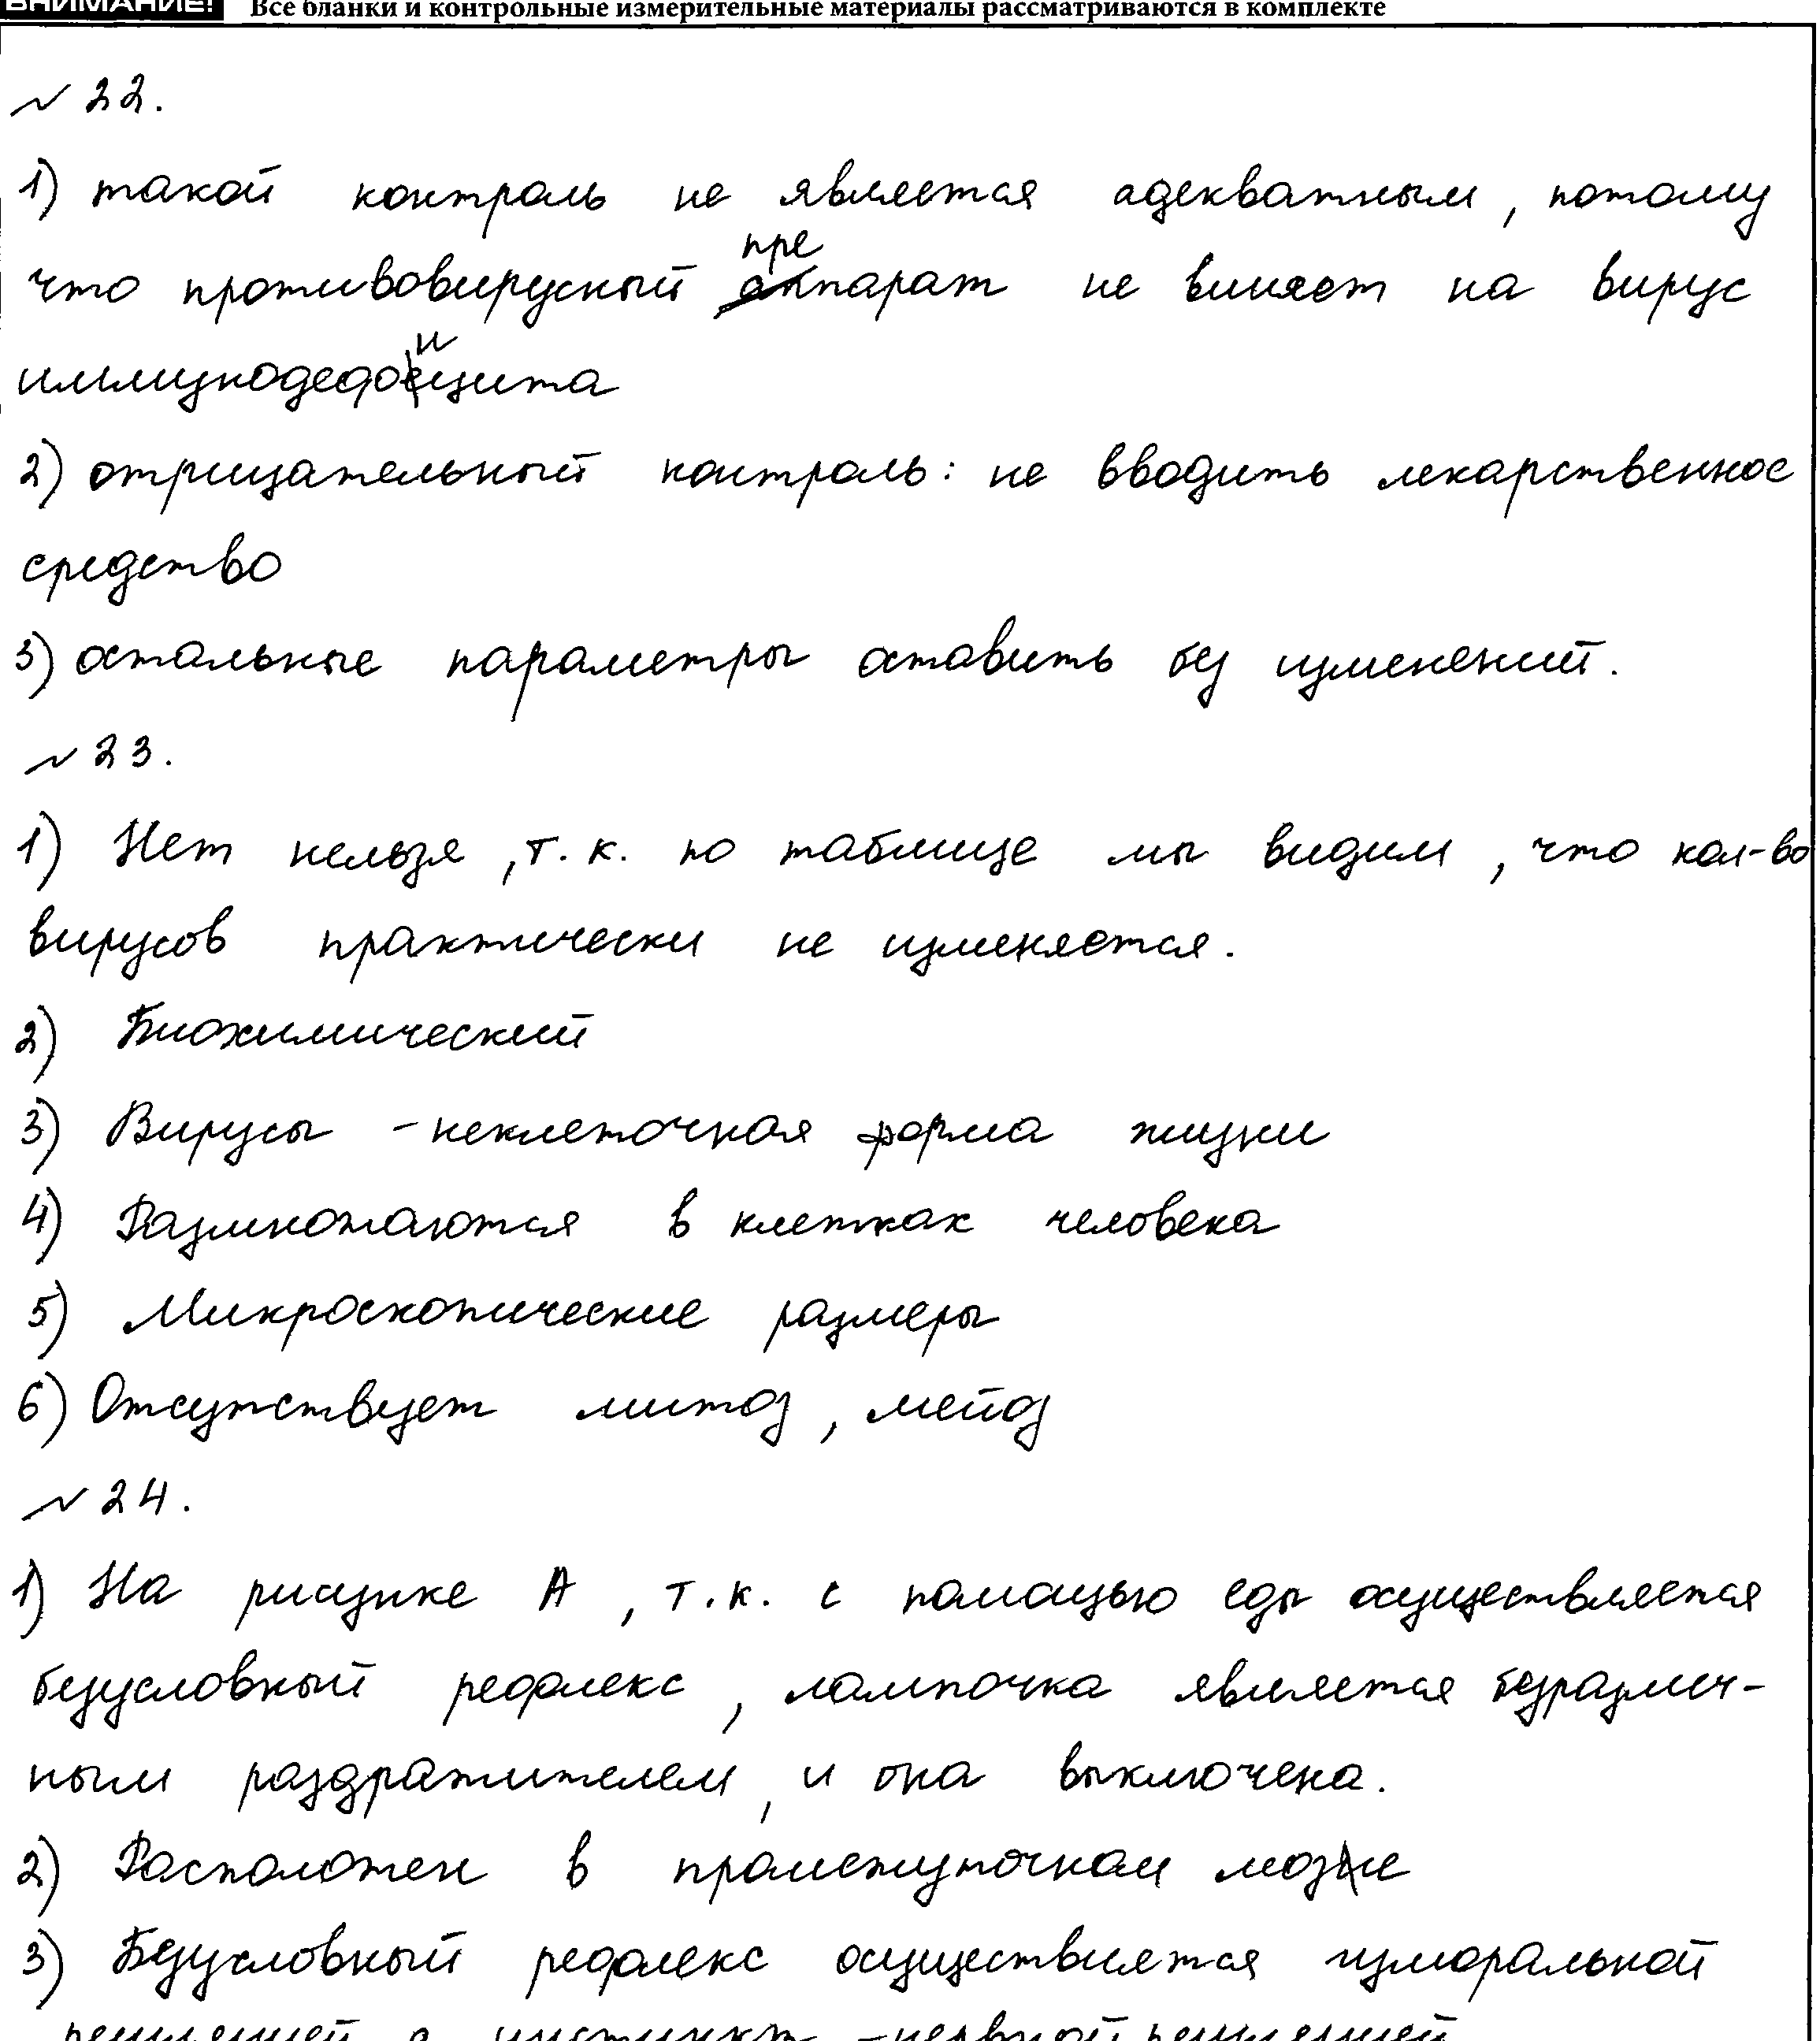 ВНИМАНИЕ! Все бланки и контрольные измерительные материалы рассматриваются в комплекте
№ 22.
1) такой контроль не является адекватным, потому
что противовирусный препарат не влияет на вирус
иммунодефицита
2) отрицательный контроль: не вводить лекарственное
средство
3) остальные параметры оставить без изменений.
№ 23.
1) Нет нельзя, т.к. по таблице мы видим, что кол-во
вирусов практически не изменяется.
2) Биохимический
3) Вирусы - неклеточная форма жизни
4) Размножаются в клетках человека
5) Микроскопические размеры
6) Отсутствует митоз, мейоз
№ 24.
1) На рисунке А, т.к. с помощью еды осуществляется
безусловный рефлекс, лампочка является безразлич-
ным раздражителем, и она выключена.
2) Расположен в промежуточном мозге
3) Безусловный рефлекс осуществляется гуморальной